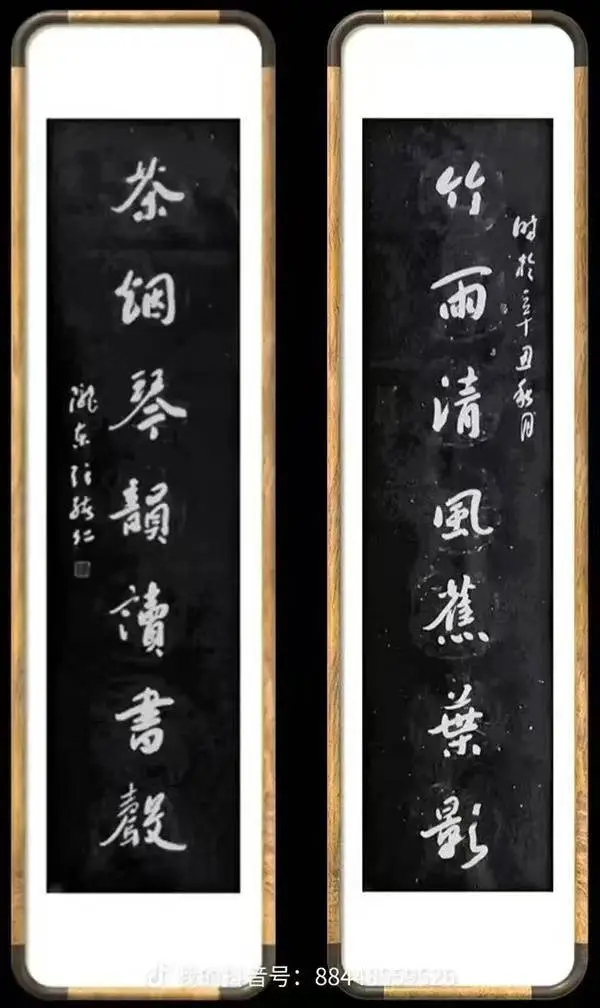 竹雨清風蕉葉影
時於辛丑秋月
茶烟琴韻讀書聲
隴東
抖音号:88448559520